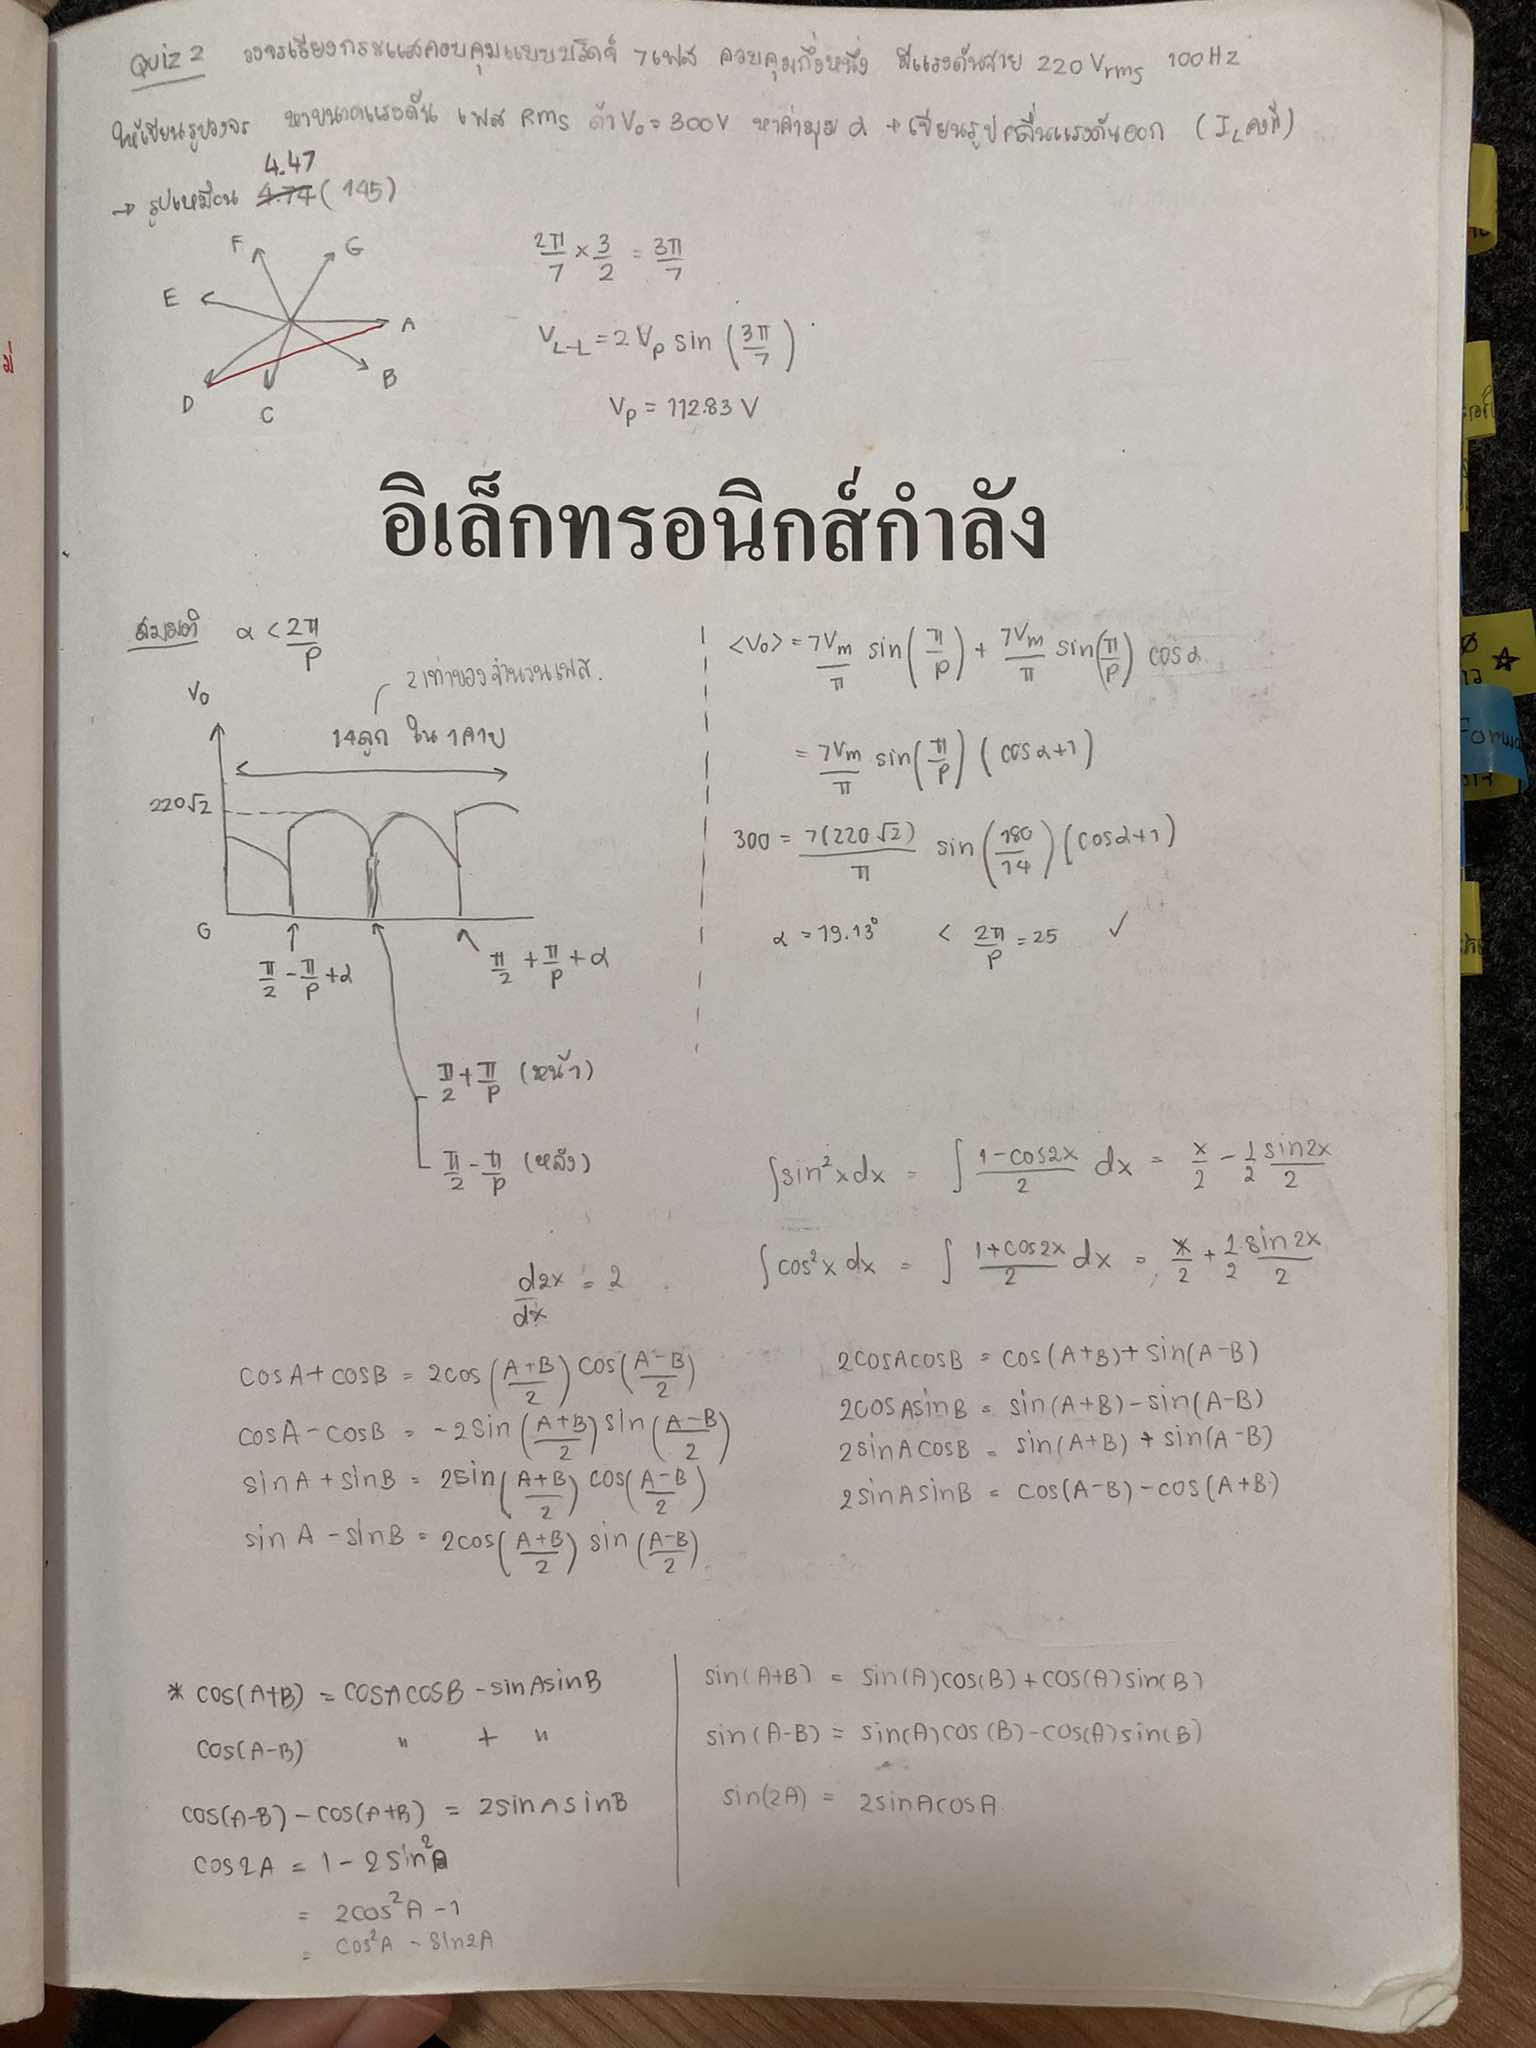 Quiz 2 วงจรเรียงกระแสควบคุมแบบบริดจ์ 7 เฟส ควบคุมกึ่งหนึ่ง มีแรงดันสาย 220 Vrms 100 Hz
ให้เขียนรูปวงจร หาขนาดแรงดัน เฟส Rms ถ้า V₀ = 300V หาค่ามุม α + เขียนรูปคลื่นแรงดันออก (I_L คงที่)
4.47
→ รูปเหมือน 4.74 (145)
F G
E
A
B
D C
2π/7 × 3/2 = 3π/7
V_L-L = 2 V_p sin (3π/7)
V_p = 112.83 V
อิเล็กทรอนิกส์กำลัง
สมมติ α < 2π/p
2 เท่าของจำนวนเฟส.
V₀
14 ลูก ใน 1 คาบ
220√2
G
π/2 - π/p + α
π/2 + π/p + α
π/2 + π/p (หน้า)
π/2 - π/p (หลัง)
<V₀> = 7Vm/π sin(π/p) + 7Vm/π sin(π/p) cos α
= 7Vm/π sin(π/p) (cos α+1)
300 = 7(220√2)/π sin(180/14) (cos α+1)
α = 19.13° < 2π/p = 25 ✓
∫sin²x dx = ∫ (1-cos2x)/2 dx = x/2 - 1/2 sin2x/2
∫cos²x dx = ∫ (1+cos2x)/2 dx = x/2 + 1/2 sin2x/2
d2x/dx = 2
cosA + cosB = 2cos((A+B)/2) cos((A-B)/2)
cosA - cosB = -2sin((A+B)/2) sin((A-B)/2)
sinA + sinB = 2sin((A+B)/2) cos((A-B)/2)
sinA - sinB = 2cos((A+B)/2) sin((A-B)/2)
2cosAcosB = cos(A+B) + sin(A-B)
2cosAsinB = sin(A+B) - sin(A-B)
2sinAcosB = sin(A+B) + sin(A-B)
2sinAsinB = cos(A-B) - cos(A+B)
* cos(A+B) = cosAcosB - sinAsinB
cos(A-B) " + "
cos(A-B) - cos(A+B) = 2sinAsinB
cos2A = 1 - 2sin²A
= 2cos²A - 1
= cos²A - sin2A
sin(A+B) = sin(A)cos(B) + cos(A)sin(B)
sin(A-B) = sin(A)cos(B) - cos(A)sin(B)
sin(2A) = 2sinAcosA